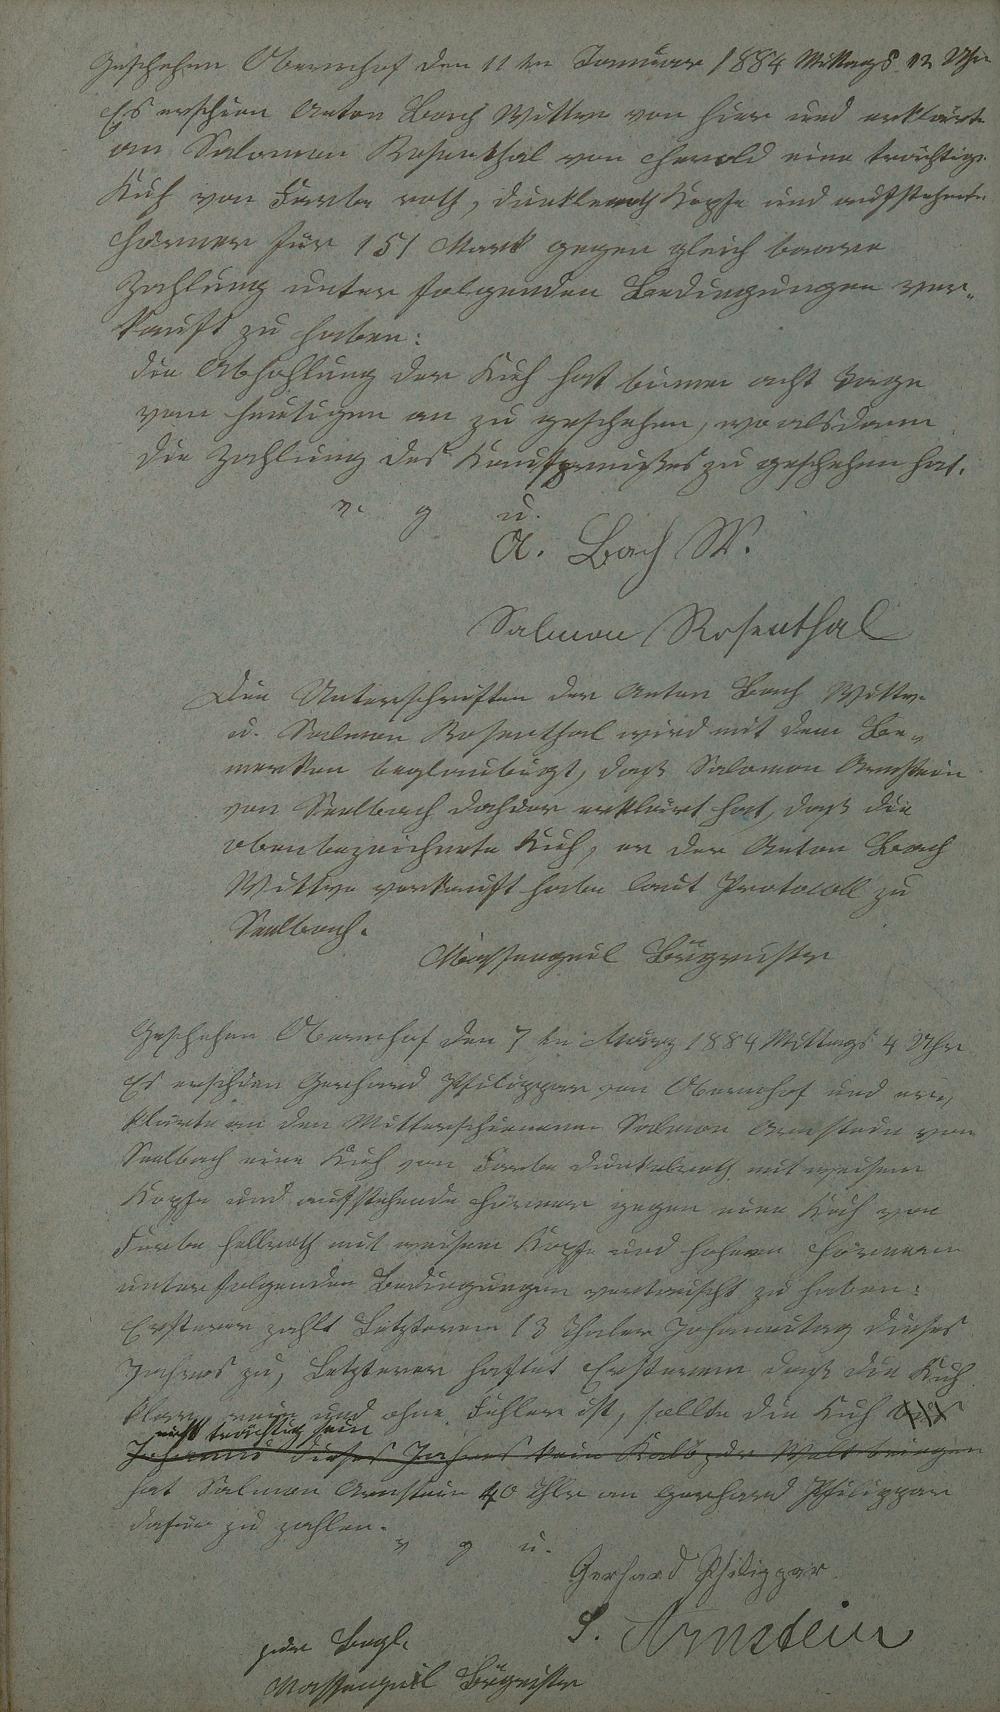 Geschehen Obernhof den 11 ten Januar 1884 Mittags 12 Uhr
Es erschien Anton Bach Wittwe von hier und erklärte
an Salomon Rosenthal von Herold eine trächtige
Kuh von Farbe roth, dunkleroth Kopfe und aufstehende
Hörner für 151 Mark gegen gleich baare
Zahlung unter folgenden Bedingungen ver„
kauft zu haben:
die Abhohlung der Kuh hat binnen acht Tage
vom heutigen an zu geschehen, wo alsdann
die Zahlung des Kaufpreißes zu geschehen hat.
v. g u.
A. Bach W.
Salmon Rosenthal
Die Unterschriften der Anton Bach Wittwe
u. Salmon Rosenthal wird mit dem Be„
merken beglaubigt, daß Salomon Arnstein
von Seelbach dahier erklärt hat, daß die
obenbezeichnete Kuh, er der Anton Bach
Wittwe verkauft habe laut Protocoll zu
Seelbach.
Massengeil Bürgmstr
Geschehen Obernhof den 7 ten März 1884 Mittags 4 Uhr
Es erschien Gerhard Philippar von Obernhof und er„
klärte an den Mitterschienenen Salmon Arnstein von
Seelbach eine Kuh von Farbe dunkelroth mit weisem
Kopfe und aufstehende Hörner gegen eine Kuh von
Farbe hellroth mit weisem Kopfe und hohen Hörnern
unter folgenden Bedingungen vertauscht zu haben:
Ersterer zahlt Letzterem 13 Thaler Johannitag dieses
Jahres zu, Letzterer haftet Ersterem daß die Kuh
klar, rein und ohne Fehler ist, sollte die Kuh
nicht trächtig sein
Johanni dieses Jahres kein Kalb zur Welt bringen
hat Salmon Arnstein 40 Thlr an Gerhard Philippar
dafür zu zahlen.
v g u.
Gerhard Philippar
S. Arnstein
zur Begl.
Massengeil Bürgmstr